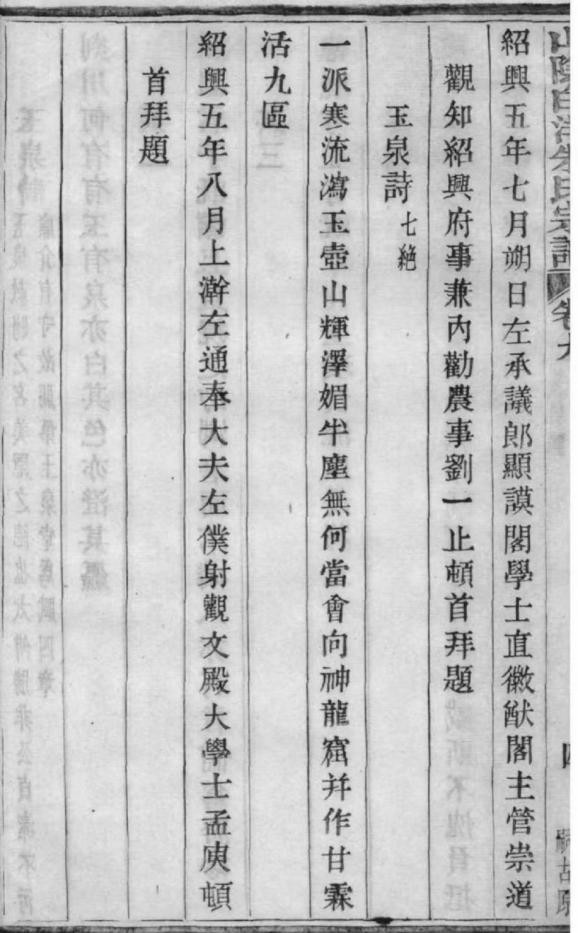 山陰白洋朱氏宗譜 卷九
紹興五年七月朔日左承議郎顯謨閣學士直徽猷閣主管崇道
觀知紹興府事兼內勸農事劉一止頓首拜題
玉泉詩 七絕
一派寒流瀉玉壺山輝澤媚半塵無何當會向神龍窟幷作甘霖
活九區
紹興五年八月上澣左通奉大夫左僕射觀文殿大學士孟庾頓
首拜題